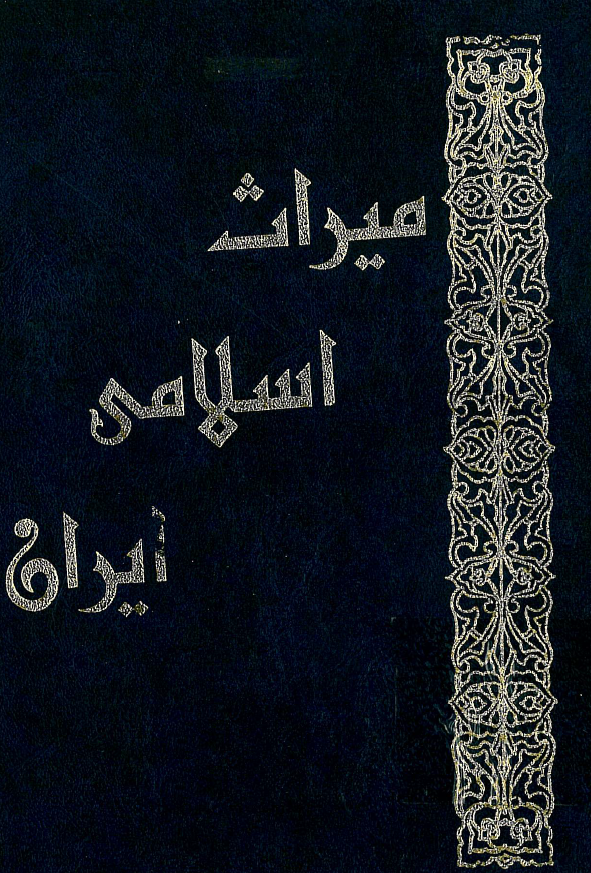 میراث
اسلامی
ایران